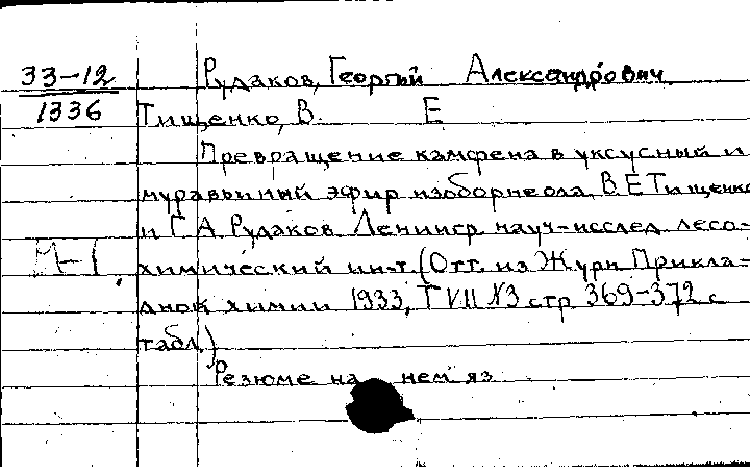 33-12
1336
Рудаков, Георгий Александрович
Тищенко, В. Е
Превращение камфена в уксусный и
муравьиный эфир изоборнеола. В.Е Тищенко
и Г.А. Рудаков. Ленингр. науч-исслед. лесо-
химический ин-т. (Отт. из Журн Прикла-
дной химии 1933, Т VII №3 стр 369-372 с
табл.)
Резюме на нем яз